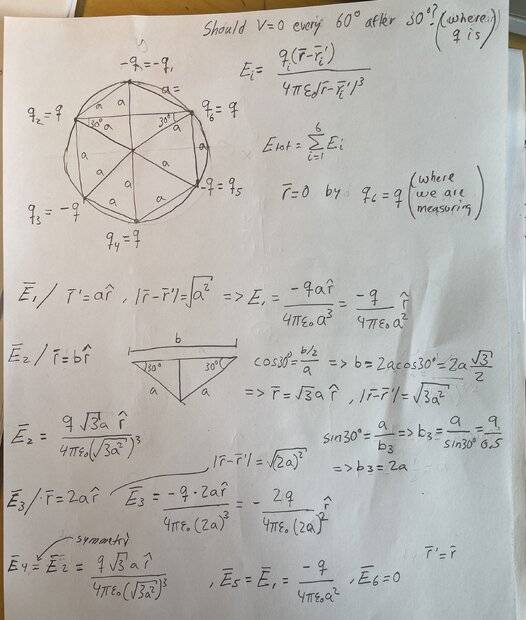 Should V=0 every 60° after 30°? (where q is)
y
-q=-q₁
a=
a
a
a
q₂=q
30°
a
30°
q₆=q
a
a
a
a
q₃=-q
a
a
-q=q₅
a
q₄=q
Eᵢ = qᵢ(r̄-r̄ᵢ')/4πε₀|r̄-r̄ᵢ'|³
Eₜₒₜ = Σᵢ₌₁⁶ Eᵢ
r̄=0 by q₆=q (where we are measuring)
Ē₁/ r̄'=ar̂ , |r̄-r̄'|=√a² => E₁ = -qar̂/4πε₀a³ = -q/4πε₀a² r̂
Ē₂/ r̄=br̂
b
30°
30°
a
a
cos30°=(b/2)/a => b=2acos30°=2a√3/2
=> r̄=√3a r̂ , |r̄-r̄'|=√3a²
Ē₂ = q√3a r̂/4πε₀(√3a²)³
sin30°=a/b₃ => b₃=a/sin30°=a/0.5
=> b₃=2a
|r̄-r̄'|=√(2a)²
Ē₃/ r̄=2ar̂
Ē₃ = -q·2ar̂/4πε₀(2a)³ = - 2q/4πε₀(2a)² r̂
symmetry
Ē₄=Ē₂ = q√3ar̂/4πε₀(√3a²)³ , Ē₅=Ē₁ = -q/4πε₀a² , Ē₆=0
r̄'=r̄